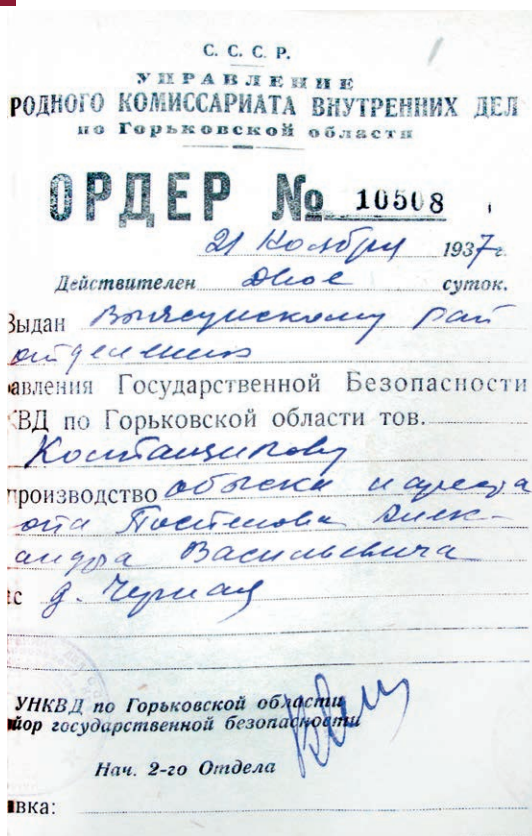 С. С. С. Р.
УПРАВЛЕНИЕ
РОДНОГО КОМИССАРИАТА ВНУТРЕННИХ ДЕЛ
по Горьковской области
ОРДЕР № 10508
21 Ноября 1937 г.
Действителен Двое суток.
Выдан Выксунскому Рай
отделению
авления Государственной Безопасности
КВД по Горьковской области тов.
производство обыска и ареста
Александра Васильевича
д. Черная
УНКВД по Горьковской области
йор государственной безопасности
Нач. 2-го Отдела
вка: